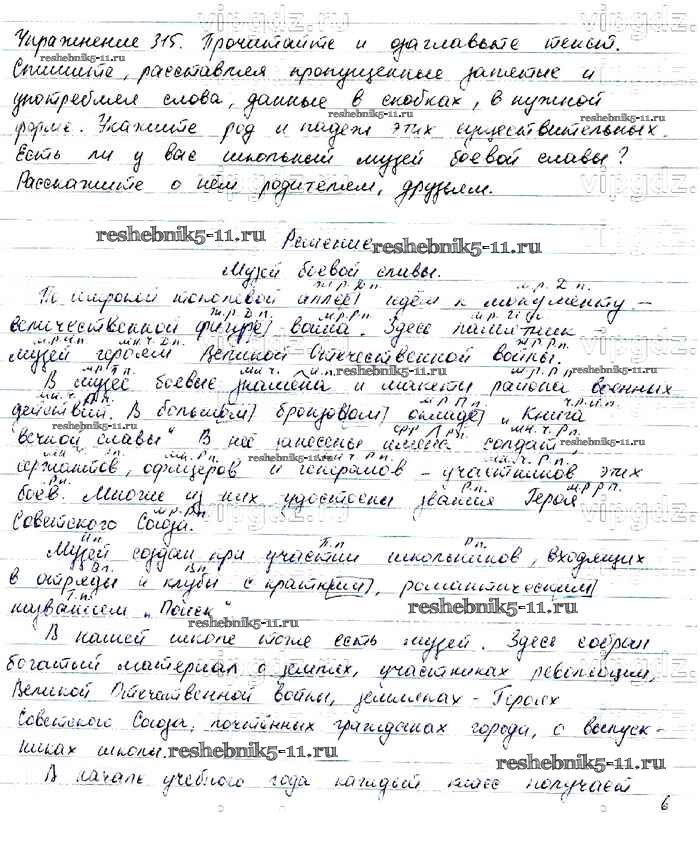 Упражнение 315. Прочитайте и озаглавьте текст.
Спишите, расставляя пропущенные запятые и
употребляя слова, данные в скобках, в нужной
форме. Укажите род и падеж этих существительных.
Есть ли у вас школьный музей боевой славы?
Расскажите о нём родителям, друзьям.
reshebnik5-11.ru
Решение
Музей боевой славы.
По широкой тополевой аллее идём к монументу –
величественной фигуре воина. Здесь памятник
музей героям Великой Отечественной войны.
В музее боевые знамёна и макеты района военных
действий. В большом бронзовом окладе „Книга
вечной славы" В неё занесены имена солдат,
сержантов, офицеров и генералов – участников этих
боев. Многие из них удостоены звания Героя
Советского Союза.
Музей создан при участии школьников, входящих
в отряды и клубы с кратким, романтическим
названием „Поиск"
В нашей школе тоже есть музей. Здесь собран
богатый материал о земляках, участниках революции,
Великой Отечественной войны, земляках – Героях
Советского Союза, почётных гражданах города, о выпуск-
никах школы.
В начале учебного года каждый класс получает
6
vipgdz.ru